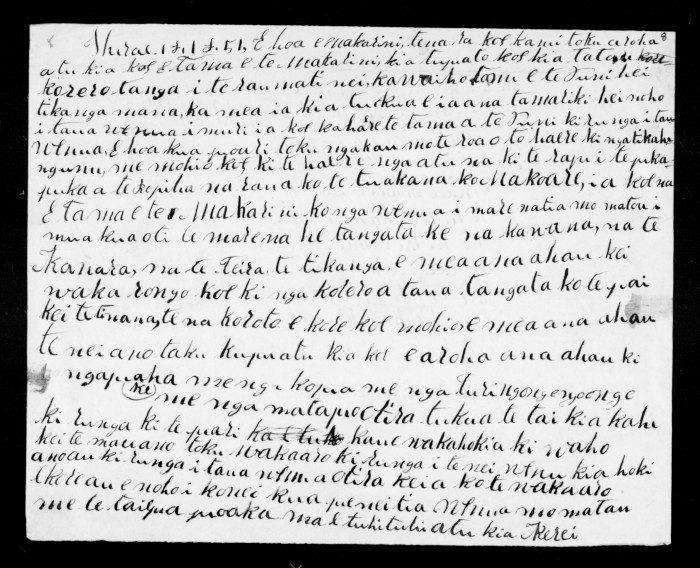 8
Hurae. 13. 1851, E hoa e makarini, tena ra koe kanui toku aroha
atu kia koe E Tama e te makarini, kia tupato koe kia
korero tanga i te raumati nei, ka waiho e te Tuni hei
tikanga mana, ka mea ia kia tukua e ia ana tamariki hei noho
i tana wenua i muri ia koe ka haere te tamaa te Tuni ki runga i tau
wenua, E hoa kua pouri toku ngakau mo te roa o to haere ki
me mohio koe ki te haere ngaatu na ki te rapu i te puka
puka a te Ropiha na raua ko te tuakana ko Makoare, ia koe na
E tama e te Makarini ko nga wenua i mare natia mo matou i
mua kua oti te marena he tangata ke na kawana, na te
Kanara, na te Teira te tikanga e mea ana ahau kei
waka rongo koe ki nga korero a taua tangata ko te pai
kei te tinana, tena koroto e kore koe mohio e mea ana ahau
te nei ano taku kupu atu kia koe e aroha ana ahau ki
ngapuaha me nga kopua me nga Turingongengonge
me nga matapootira tukua te tai kia kahu
ki runga ki te pari kaua wakahokia ki waho
kei te mau ano toku wakaaro ki runga i te nei wenua kia hoki
anoau ki runga i tana wenua otira kei a koe te wakaaro
ekore au e noho i konei kua peneitia wenua mo matau
me te taipua poaka ma e tuhituhi atu kia Kerei